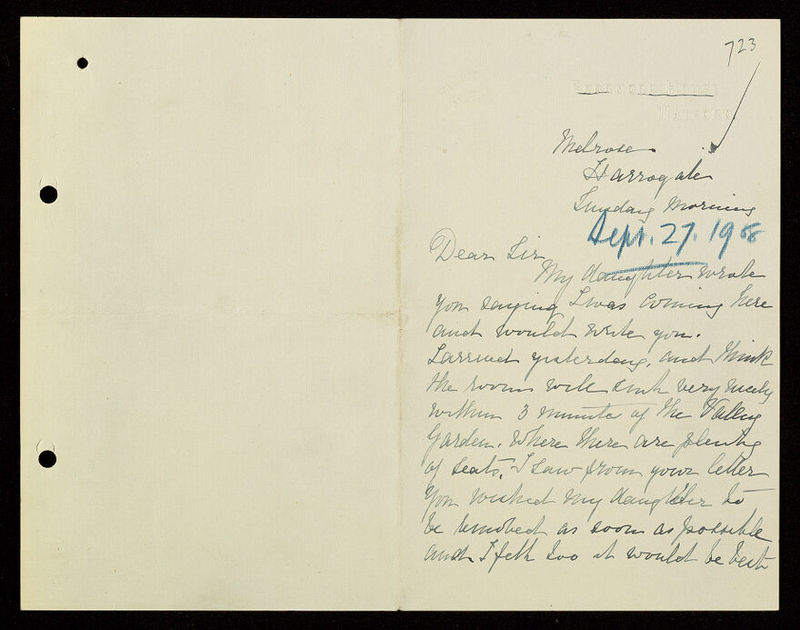 723
Melrose
Harrogate
Sunday Morning
Sept. 27. 1908
Dear Sir
My daughter wrote
you saying I was coming here
and would write you.
I arrived yesterday, and think
the rooms will suit very nicely
within 3 minutes of the Valley
Garden. Where there are plenty
of seats, I saw from your letter
you wished my daughter to
be removed as soon as possible
and I felt too it would be best